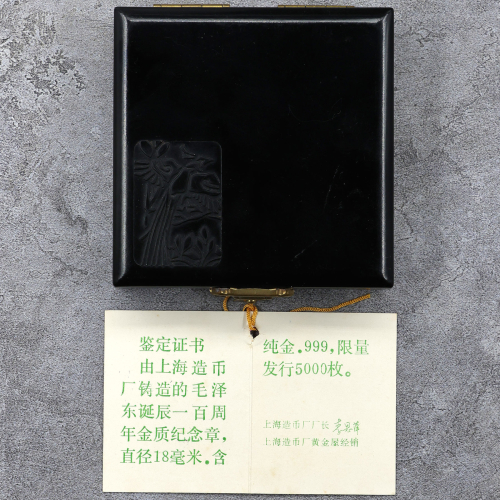 鉴定证书
由上海造币
厂铸造的毛泽
东诞辰一百周
年金质纪念章，
直径18毫米．含
纯金.999，限量
发行5000枚。
上海造币厂厂长
上海造币厂黄金屋经销